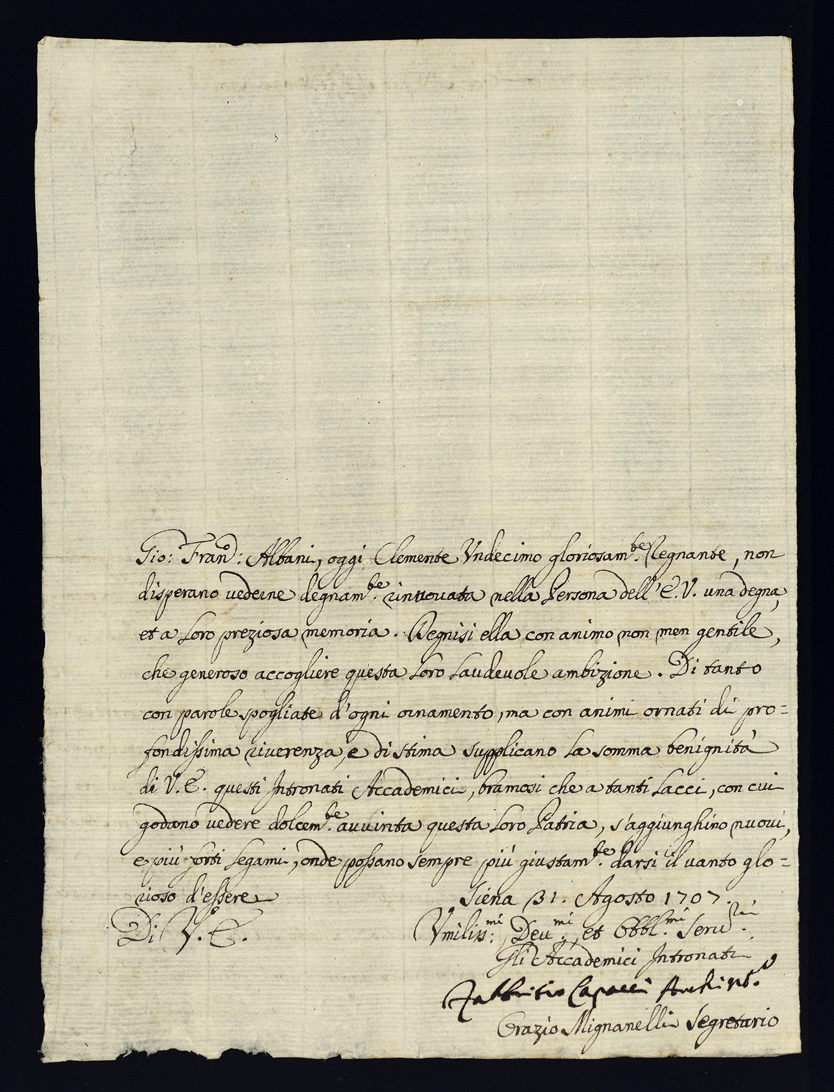 Gio: Fran.º: Albani, oggi Clemente Undecimo gloriosam.te Regnante, non
disperano vederne degnam.te rinnovata nella Persona dell'E.V. una degna,
et a loro preziosa memoria. Degnisi ella con animo non men gentile,
che generoso accogliere questa loro laudevole ambizione. Di tanto
con parole spogliate d'ogni ornamento, ma con animi ornati di pro=
fondissima riverenza, e di stima supplicano la somma benignità
di V.E. questi Intronati Accademici, bramosi che a tanti lacci, con cui
godano vedere dolcem.te avvinta questa loro Patria, s'aggiunghino nuovi,
e più forti legami, onde possano sempre più giustam.te darsi il vanto glo=
rioso d'essere
Siena 31. Agosto 1707.
Di V.E.
Umiliss.mi Dev.mi, et Obbl.mi Serv.ri
Gli Accademici Intronati
Fabbritio Capacci Archint.º
Orazio Mignanelli Segretario